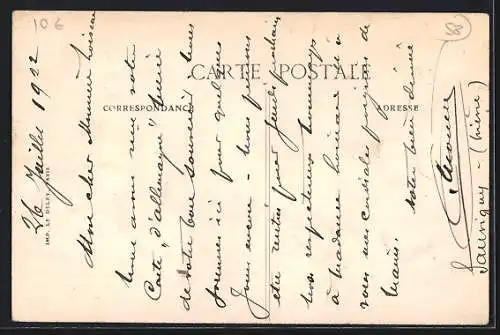 10 €
CARTE POSTALE
CORRESPONDANCE
ADRESSE
26 Juillet 1922
Mon cher Monsieur Loiseau
Nous avons reçu votre
Carte "d'allemagne" merci
de votre bon souvenir. Nous
sommes ici pour quelques
Jours encore - nous pensons
être rentrés pour jeudi prochain
Mes respectueux hommages
à Madame Loiseau et à
vous mes cordiales poignées de
mains.
Votre bien dévoué
Sauvigny - (Nièvre)